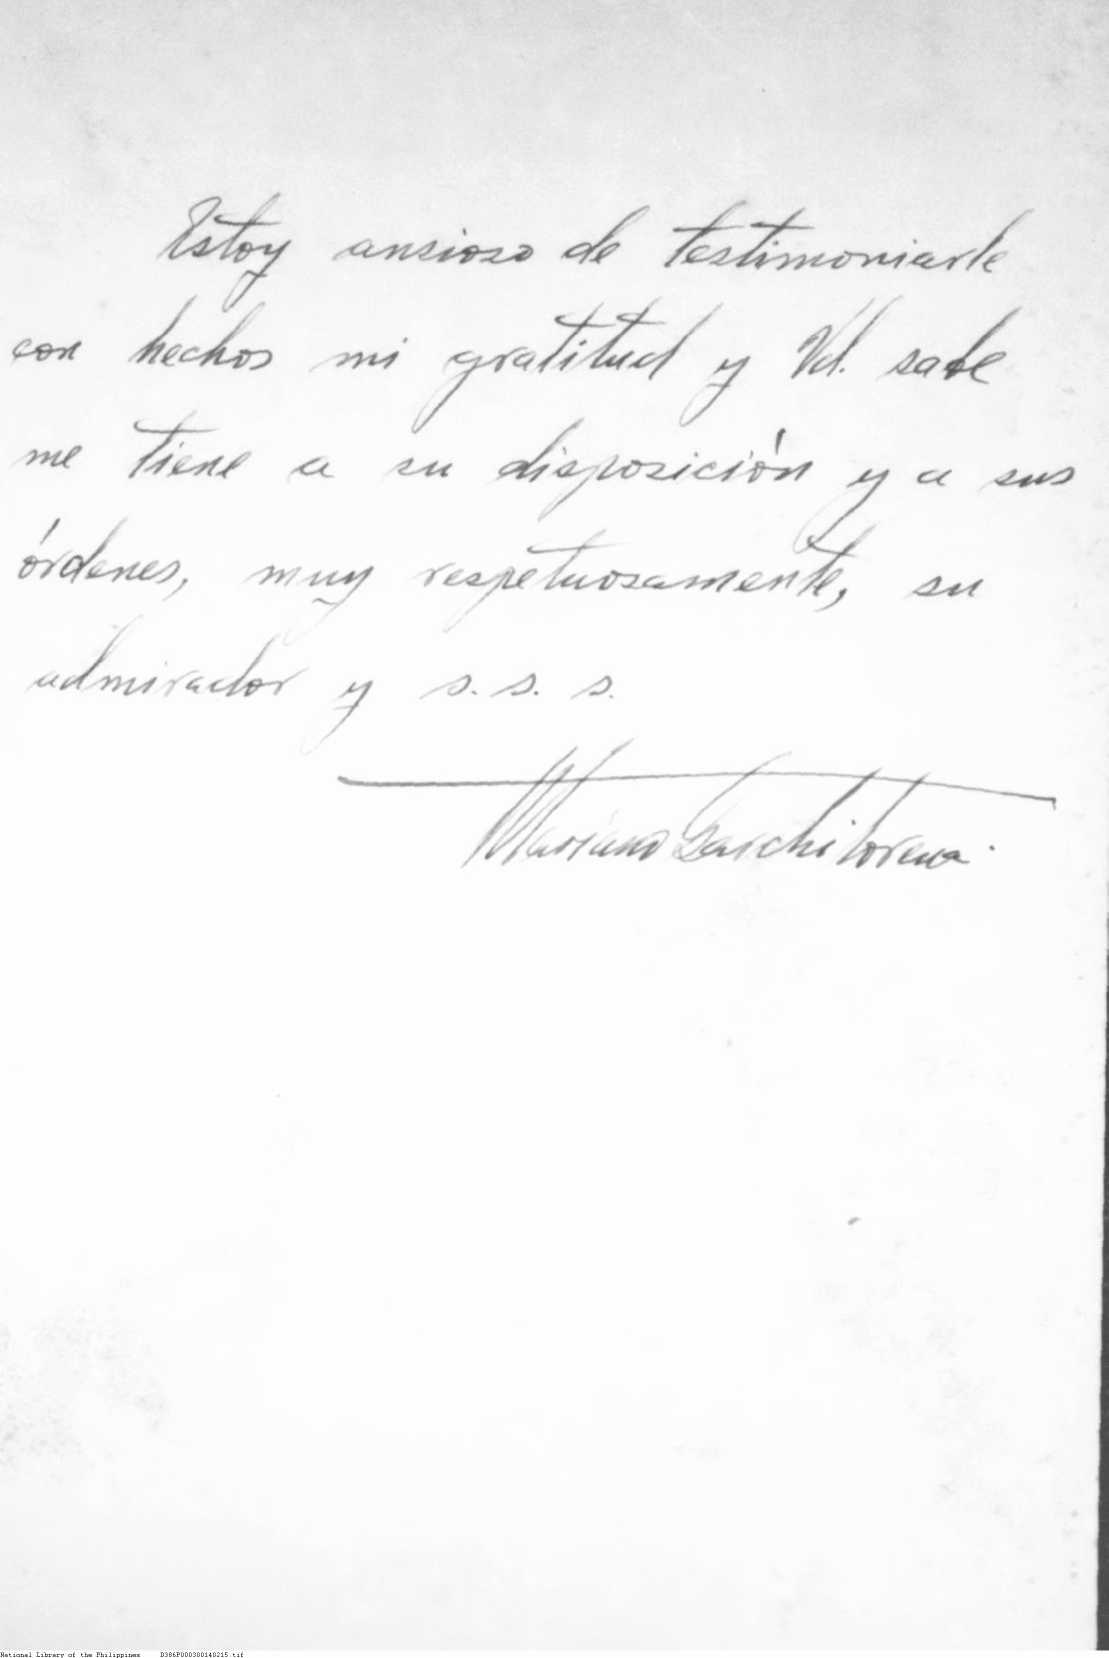 Estoy ansioso de testimoniarle
con hechos mi gratitud y Vd. sabe
me tiene a su disposición y a sus
órdenes, muy respetuosamente, su
admirador y s. s. s.
Mariano Garchitorena.
National Library of the Philippines D386P000300140215.tif